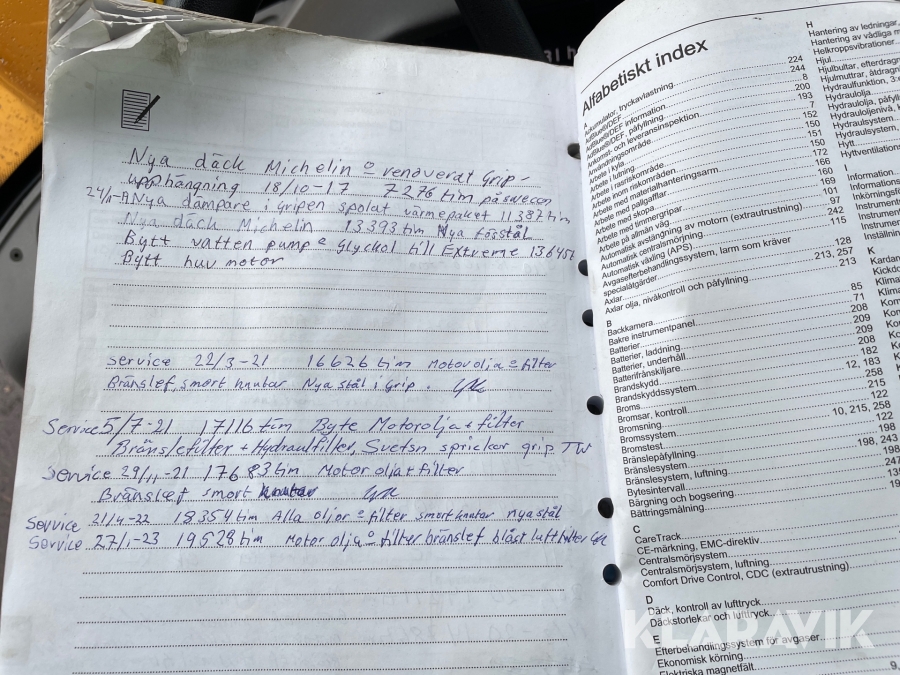 Nya däck Michelin o renoverat Grip-
upphängning 18/10-17 7276 tim påsvecen
Nya dämpare i Gripen spolat värmepaket 11387 tim
Nya däck Michelin 13393 tim Nya förstål
Bytt vatten pump e Glyckol till Extreme
Bytt huv motor
Service 22/3-21 16626 tim Motorolja o filter
Bränslef. smort knutar Nya stål i Grip.
Service 5/7-21 17116 tim Byte Motorolja + filter
Bränslefilter + Hydraulfilter, Svetsn sprickor grip TW
Service 29/11-21 17683 tim Motorolja + filter
Bränslef smort knutar
Service 21/4-22 18354 tim Alla oljor o filter smort knutar nya stål
Service 27/1-23 19528 tim Motorolja o filter bränslef blåst luftfilter
31 h
Alfabetiskt index
A
Ackumulator, tryckavlastning 224
AdBlue®/DEF 244
AdBlue®/DEF information 8
AdBlue®/DEF, påfyllning 200
Ankomst- och leveransinspektion 193
Användningsområde 7
Arbete i kyla 152
Arbete i lutning 150
Arbete i rasriskområde 151
Arbete inom riskområden 150
Arbete med materialhanteringsarm 172
Arbete med pallgafflar 166
Arbete med skopa 160
Arbete med timmergripar 169
Arbete på allmän väg 101
Automatisk avstängning av motorn (extrautrustning) 97
Automatisk centralsmörjning 242
Automatisk växling (APS) 115
Avgasefterbehandlingssystem, larm som kräver
specialåtgärder 128
Axlar 213, 257
Axlar olja, nivåkontroll och påfyllning 213
B
Backkamera 85
Bakre instrumentpanel 71
Batterier 208
Batterier, laddning 209
Batterier, underhåll 209
Batterifrånskiljare 208
Brandskydd 182
Brandskyddssystem 12, 183
Broms 258
Bromsar, kontroll 215
Bromsning 122
Bromssystem 10, 215, 258
Bromstest 122
Bränslepåfyllning 198
Bränslesystem 198, 243
Bränslesystem, luftning 198
Bytesintervall 247
Bärgning och bogsering
Bättringsmålning
C
CareTrack
CE-märkning, EMC-direktiv
Centralsmörjsystem
Centralsmörjsystem, luftning
Comfort Drive Control, CDC (extrautrustning)
D
Däck, kontroll av lufttryck
Däckstorlekar och lufttryck
E
Efterbehandlingssystem för avgaser
Ekonomisk körning
Elektriska magnetfält
9,
H
Hantering av ledningar,
Hantering av vådliga m
Helkroppsvibrationer
Hjul
Hjulbultar, efterdragn
Hjulmuttrar, åtdragn
Hydraulfunktion, 3:e
Hydraulolja
Hydraulolja, påfyll
Hydrauloljenivå, k
Hydraulsystem
Hydraulsystem,
Hytt
Hyttventilation
I
Information
Informations
Inkörningsf
Instrument
Instrument
Instrument
Inställning
K
Kardan
Kickdo
Klima
Klima
KLARAVIK